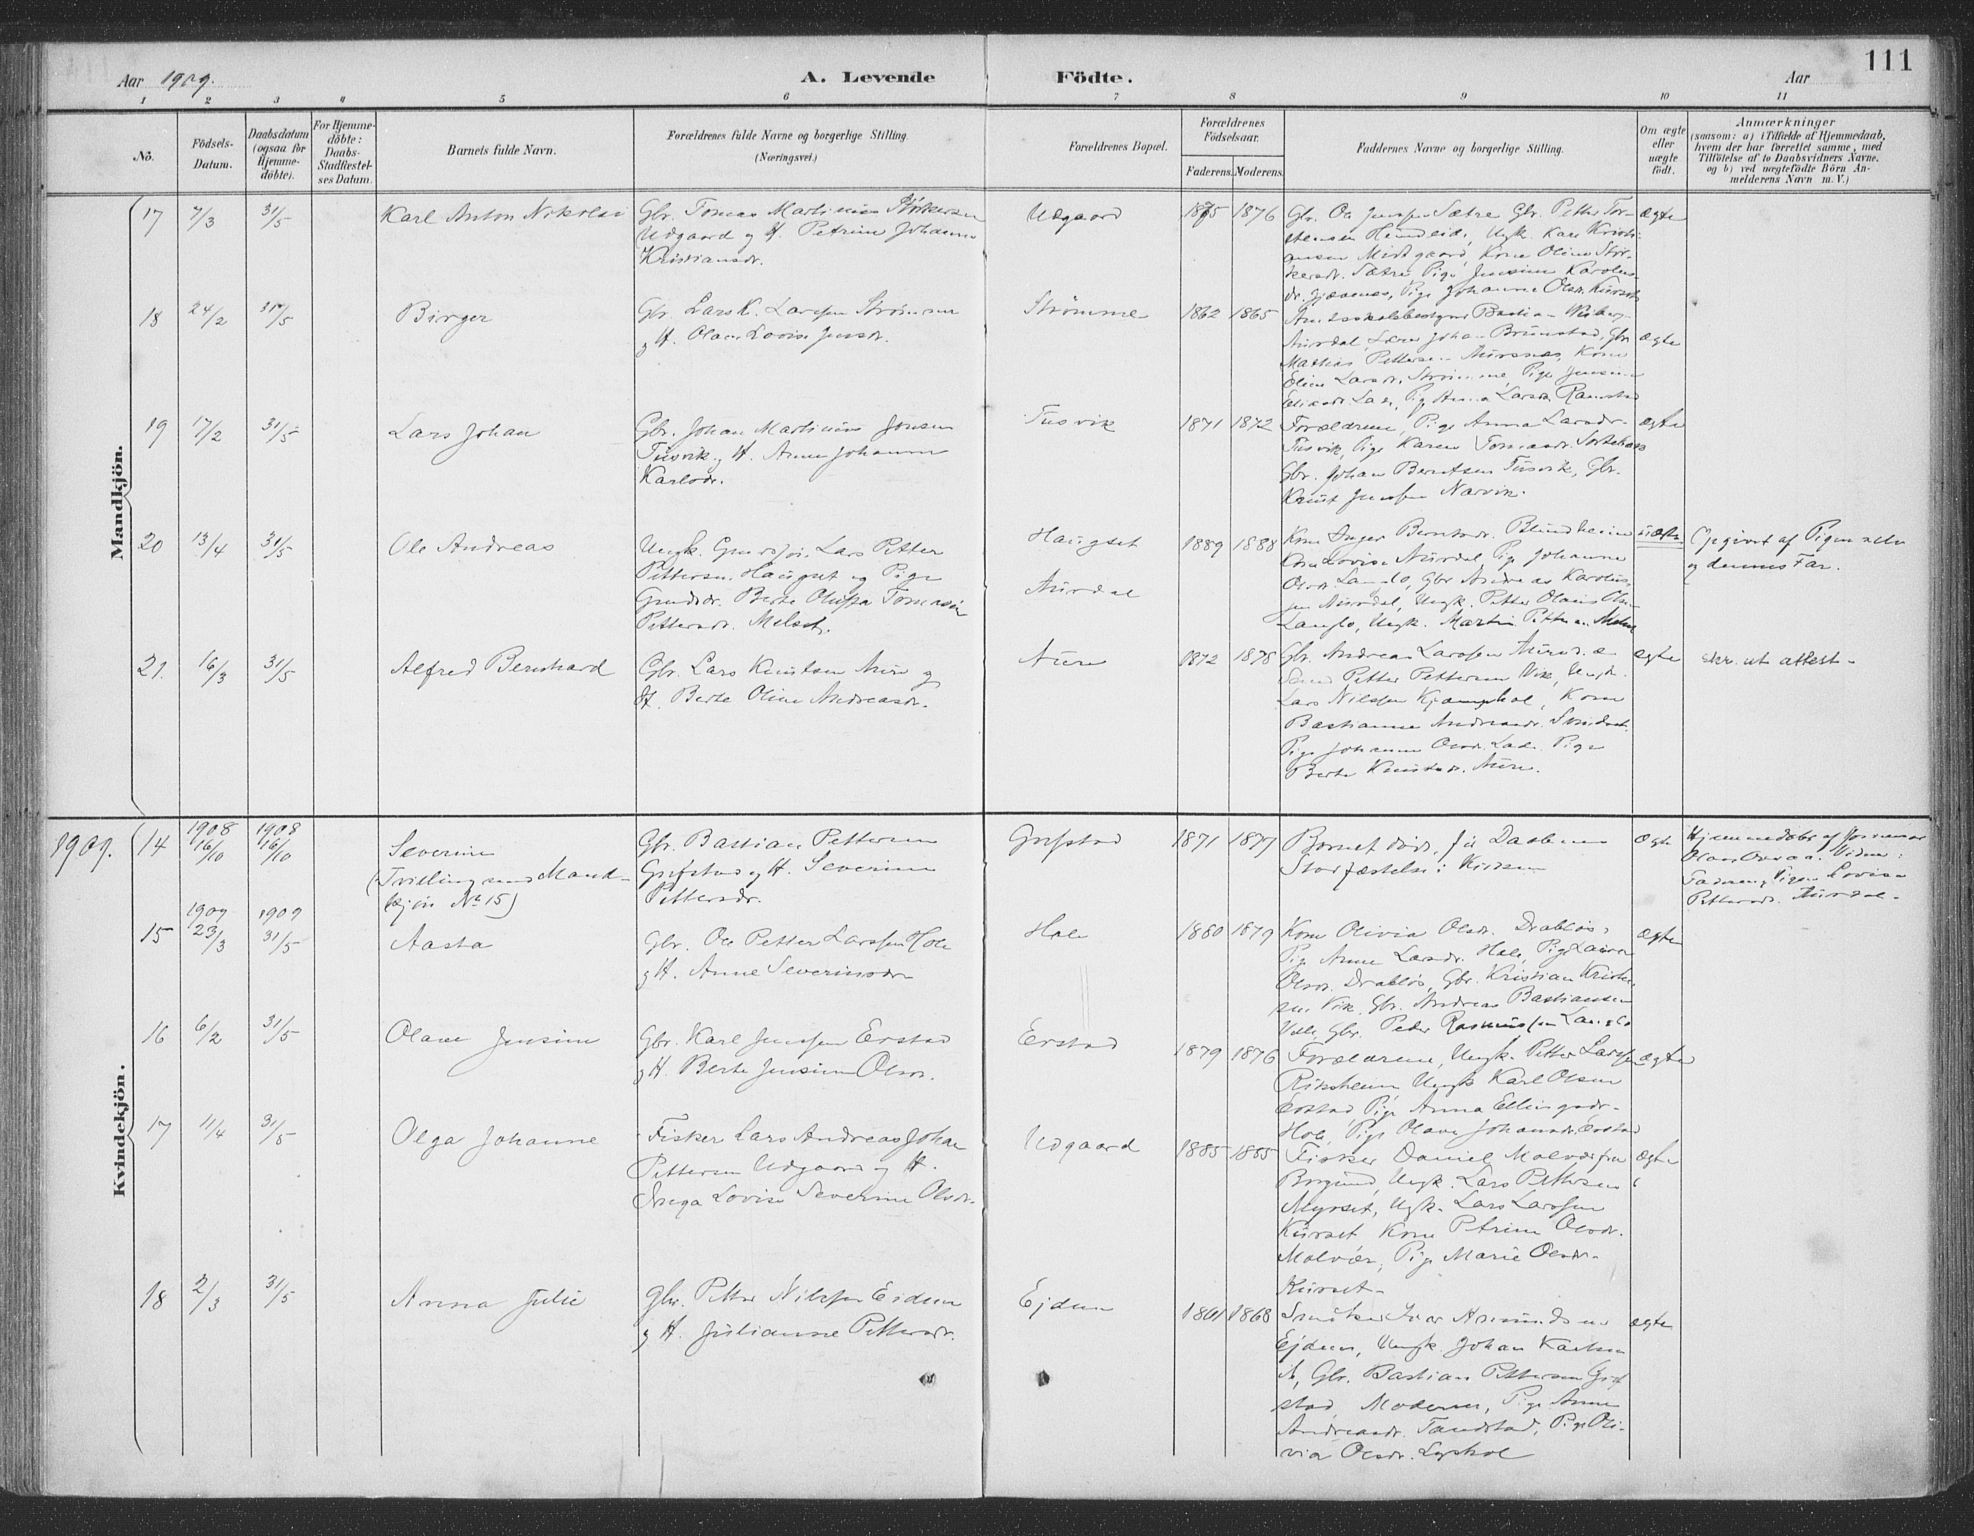 111
Aar 1909.
A. Levende Födte.
Aar
1 2 3 4 5 6 7 8 9 10 11
No.
Födsels-
Datum.
Daabsdatum
(ogsaa for
Hjemme-
döbte).
For Hjemme-
döbte:
Daabs-
Stadfæstel-
ses Datum.
Barnets fulde Navn.
Forældrenes fulde Navne og borgerlige Stilling.
(Næringsvei.)
Forældrenes Bopæl.
Forældrenes
Födselsaar.
Faderens. Moderens.
Faddernes Navne og borgerlige Stilling.
Om ægte
eller
uægte
födt.
Anmærkninger
(saasom: a) i Tilfælde af Hjemmedaab,
hvem der har forrettet samme, med
Tilföielse af to Daabsvidners Navne,
og b) ved uægtefödte Börn An-
melderens Navn m. V.)
Mandkjön.
17 7/3 31/5
Karl Anton Nikolai
Gbr. Tomas Martinius
Udgaard og H. Petrine
Kristiansdr.
Udgaard
1875 1876
Gbr. Ole Jenssen Sætre Gbr. Petter Tor-
stensen Hundeide, Ungk. Karl Kristi-
ansen Midtgaard, Kone Oline
Sætre, Pige Jensine
Pige Johanne Olsdr. Kurset
ægte
18 24/2 31/5
Birger
Gbr. Lars K. Larssen Strømmen
og H. Olave Lovise Jensdr.
Strømme
1862 1865
Bastian
Aurdal, Lærer Johan Brunstad, Gbr.
Mathias Pettersen Aursnes, Kone
Eline Larsdr. Strømme, Pige Jensine
Pige Anna Larsdr. Ramstad
ægte
19 17/2 31/5
Lars Johan
Gbr. Johan Martinius Jonsen
Tusvik og H. Anne Johanne
Karlsdr.
Tusvik
1871 1872
Forældrene, Pige Anna Larsdr.
Tusvik, Pige Karen Tomasdr.
Gbr. Johan Berntsen Tusvik, Gbr.
Knut Jenssen Narvik.
ægte
20 13/4 31/5
Ole Andreas
Ungk. Lars Petter
Pettersen Haugset og Pige
Berte Olufsa Tomasine
Pettersdr. Melset.
Haugset
Aurdal
1889 1888
Kone Inger Berntsdr. Blindheim
Kone Lovise Aurdal, Pige Johanne
Olsdr. Langlo, Gbr. Andreas Karolius-
sen Aurdal, Ungk. Petter Olaus Olsen
Langlo, Ungk. Martin Pettersen
uægte
Opgivet af Pigen selv
og dennes Far.
21. 16/3 31/5
Alfred Bernhard
Gbr. Lars Knutsen Aure og
H. Berte Oline Andreasdr.
Aure
1872 1878
Gbr. Andreas Larssen
Petter Pettersen Vik, Ungk.
Lars Nilssen Kjæmphol, Kone
Bastianne Andreasdr.
Pige Johanne Olsdr. Lade. Pige
Berte Knutsdr. Aure.
ægte
skr. ut attest.
1909.
Kvindekjön.
14 1908 16/10 1908 16/10
Severine
(Tvilling med Mand-
kjøn No 15)
Gbr. Bastian Pettersen
Grifstad og H. Severine
Pettersdr.
Grifstad
1871 1877
Barnet døde før Daabens
Stadfæstelse i Kirken
ægte
Hjemmedøbt af Jordmor
Vidner:
Faderen og Pigen Lovise
Pettersdr. Aurdal.
15 1909 23/3 1909 31/5
Aasta
Gbr. Ole Petter Larssen Hole
og H. Anne Severinsdr.
Hole
1880 1879
Kone Olivia Olsdr. Drabløs,
Pige Anne Larsdr. Hole, Pige Laura
Olsdr. Drabløs, Gbr. Kristian
Vik, Gbr. Andreas Bastiansen
Gbr. Peder Rasmussen Langlo
ægte
16 6/2 31/5
Olave Jensine
Gbr. Karl Jenssen Erstad
og H. Berte Jensine Olsdr.
Erstad
1879 1876
Forældrene, Ungk. Petter Larssen
Riksheim Ungk. Karl Olsen
Erstad Pige Anna Ellingsdr.
Hole, Pige Olave Johansdr. Erstad
ægte
17 11/4 31/5
Olga Johanne
Fisker Lars Andreas Johan
Pettersen Udgaard og H.
Inga Lovise Severine Olsdr.
Udgaard
1885 1885
Fisker Daniel Molvær fra
Borgund, Ungk. Lars Pettersen
Myrset, Ungk. Lars Larssen
Kurset Kone Petrine Olsdr.
Molvær, Pige Marie Olsdr.
Kurset.
ægte
18 2/3 31/5
Anna Julie
Gbr. Petter Nilssen Eidem
og H. Julianne Pettersdr.
Ejdem
1861 1868
Snedker Ivar Amundsen
Ejdem, Ungk. Johan Karlsen
Gbr. Bastian Pettersen Grif-
stad Moderen, Pige Anne
Andreasdr. Tandstad, Pige Oli-
via Olsdr. Lyshol
ægte